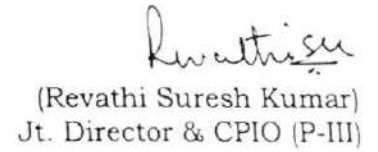 Revathisu
(Revathi Suresh Kumar)
Jt. Director & CPIO (P-III)